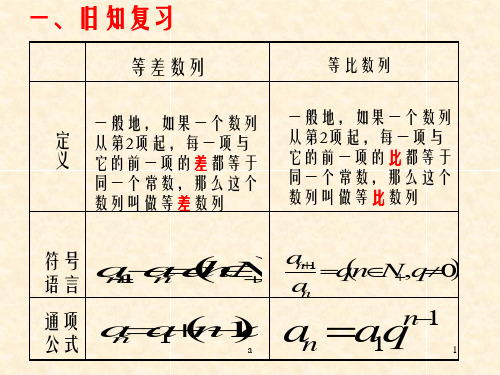 一、旧知复习
等差数列
等比数列
定义
一般地，如果一个数列
从第2项起，每一项与
它的前一项的差都等于
同一个常数，那么这个
数列叫做等差数列
一般地，如果一个数列
从第2项起，每一项与
它的前一项的比都等于
同一个常数，那么这个
数列叫做等比数列
符号
语言
a_{n+1}/a_n = q(n∈N_+, q≠0)
通项
公式
a_n = a_1 q^{n-1}
a
1